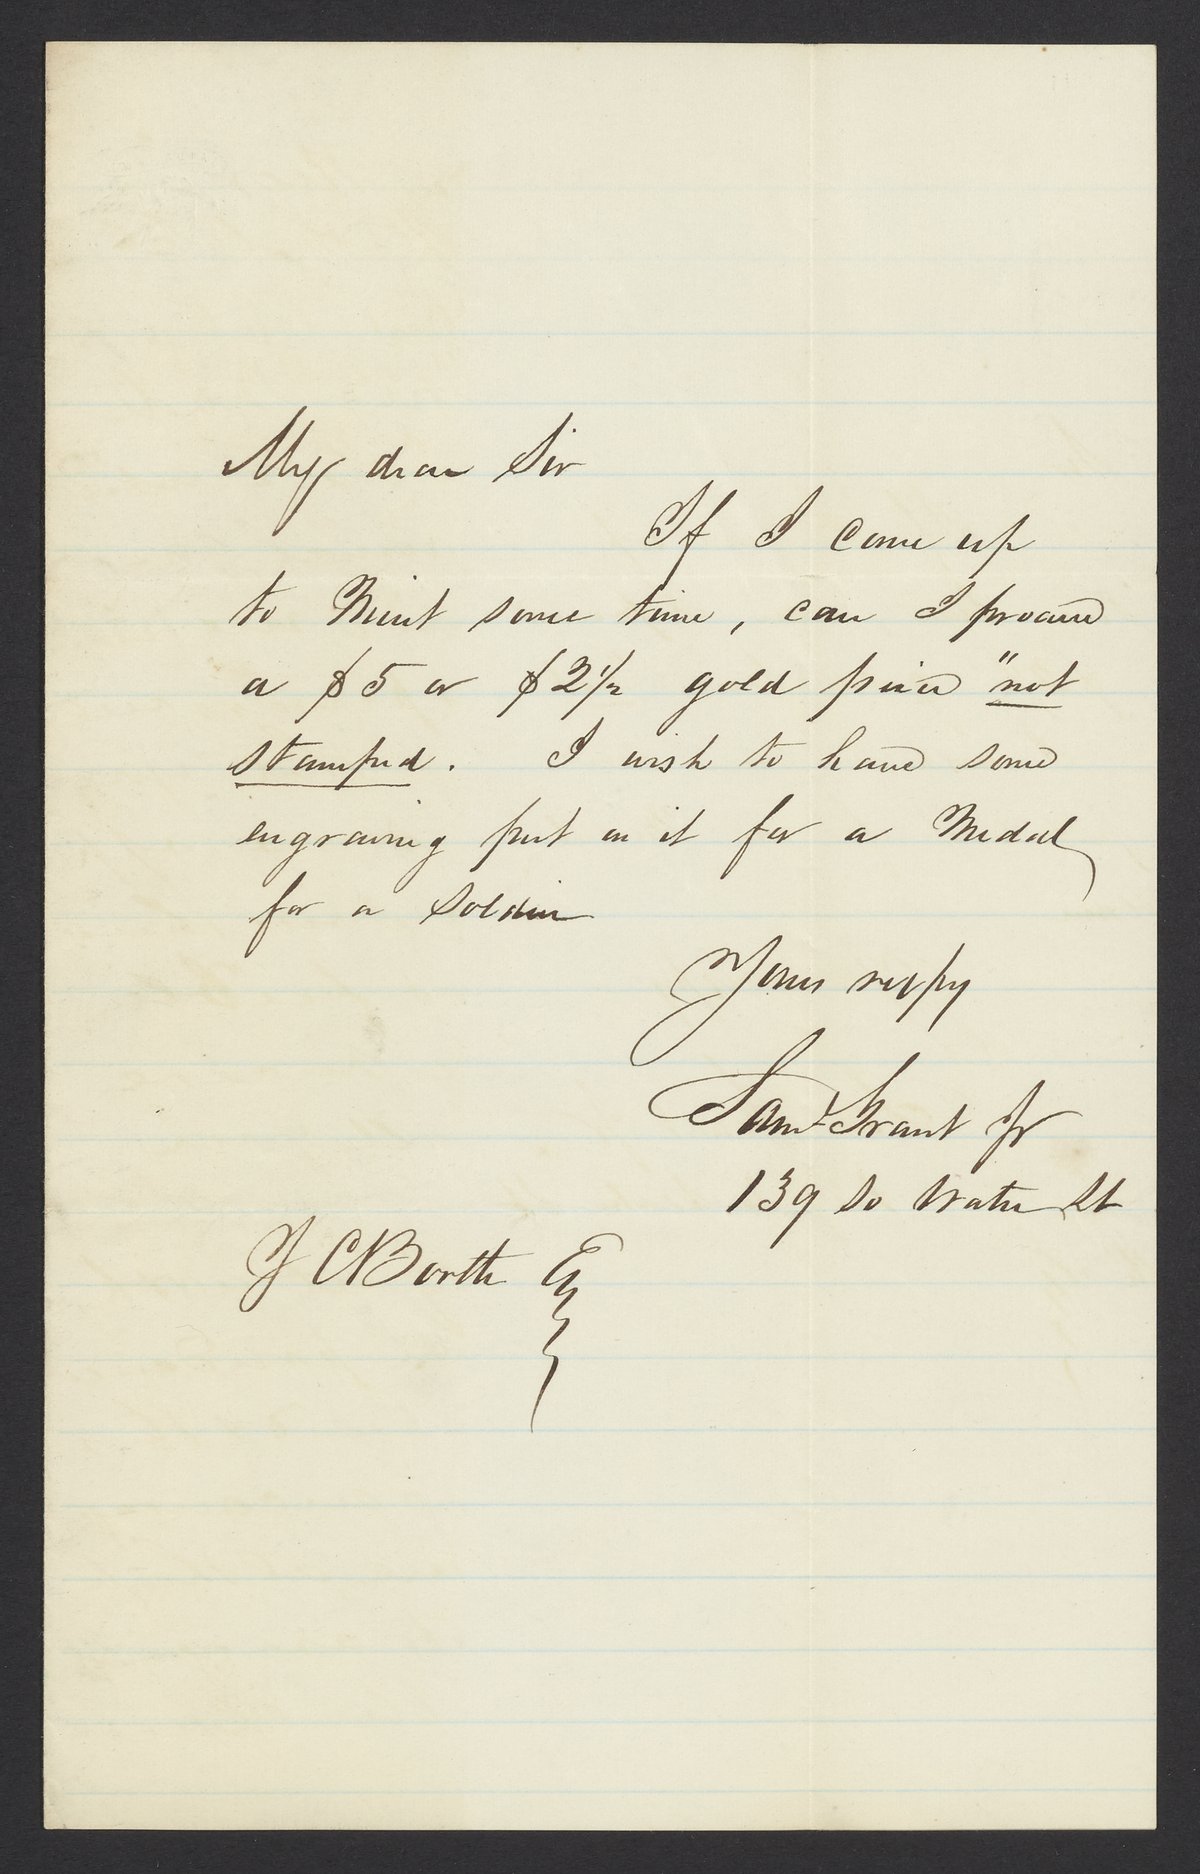 My dear Sir
If I come up
to Mint some time, can I procure
a $5 or $2½ gold piece "not
stamped. I wish to have some
engraving put on it for a Medal
for a soldier
Yours respy
Saml Grant Jr
139 So Water St
J C Booth Esq